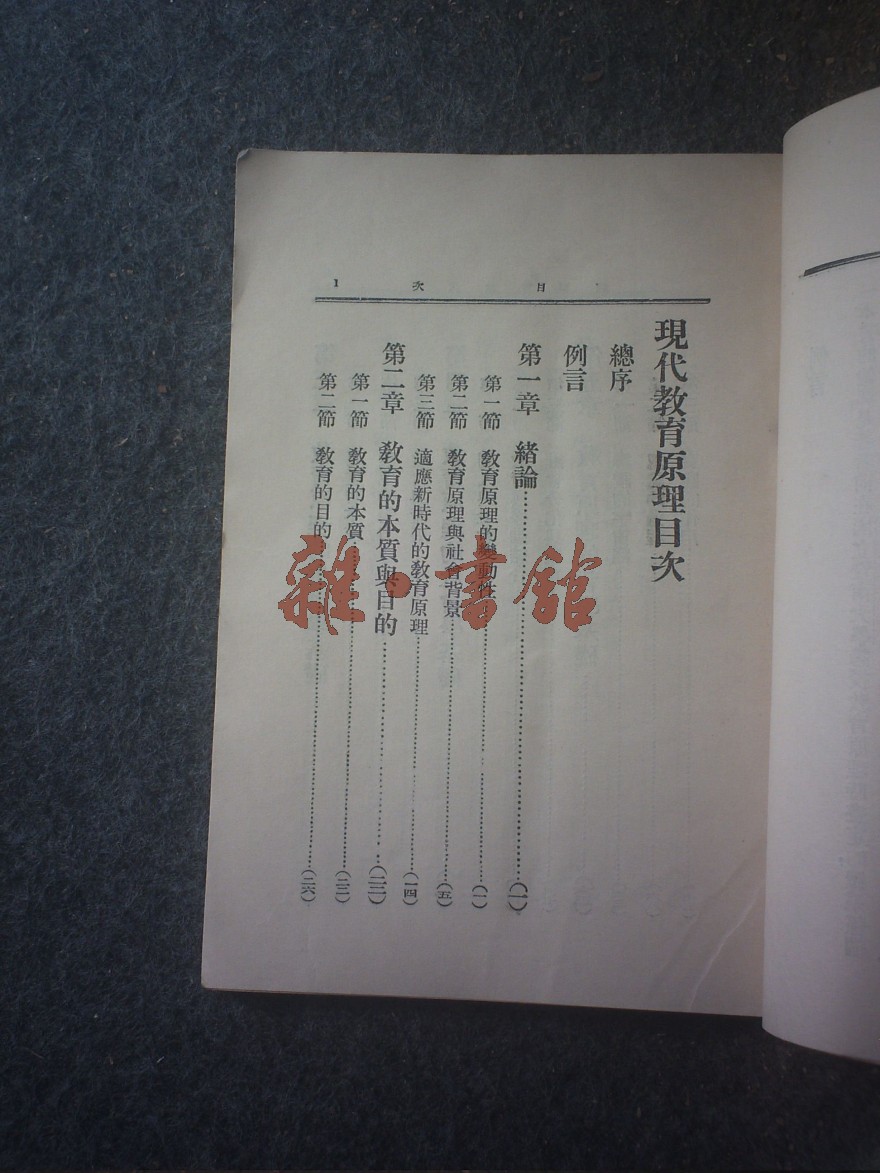 目次 1
現代教育原理目次
總序
例言
第一章 緒論……(一)
第一節 教育原理的變動性……(一)
第二節 教育原理與社會背景……(五)
第三節 適應新時代的教育原理……(一四)
第二章 教育的本質與目的……(二二)
第一節 教育的本質……(二二)
第二節 教育的目的……(二六)
雜·書館